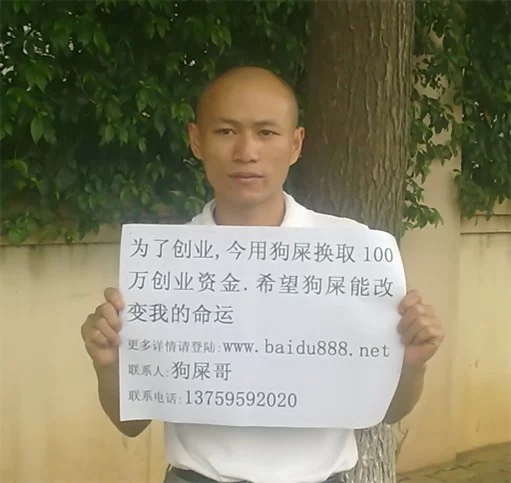 为了创业,今用狗屎换取100
万创业资金.希望狗屎能改
变我的命运
更多详情请登陆:www.baidu888.net
联系人:狗屎哥
联系电话:13759592020